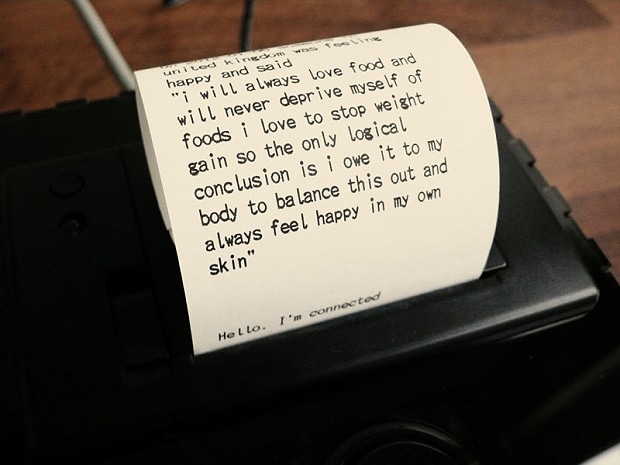 united kingdom was feeling
happy and said
"i will always love food and
will never deprive myself of
foods i love to stop weight
gain so the only logical
conclusion is i owe it to my
body to balance this out and
always feel happy in my own
skin"
Hello. I'm connected